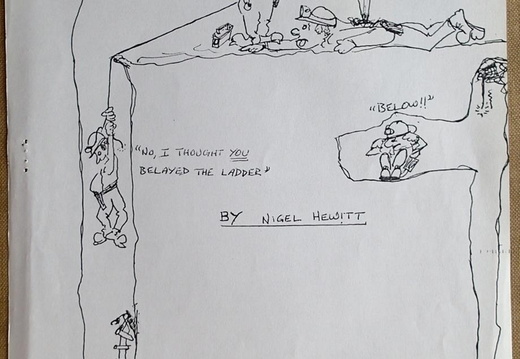 "BELOW!!"
"NO, I THOUGHT YOU
BELAYED THE LADDER"
BY NIGEL HEWITT